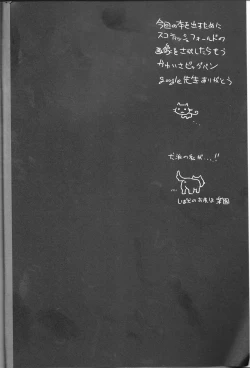 今回の本を出すために
スコティッシュフォールドの
画像をさがしたらもう
かわいさビッグバン
google先生ありがとう
犬派の私が…!!
…
しっぽとのお尻は楽園